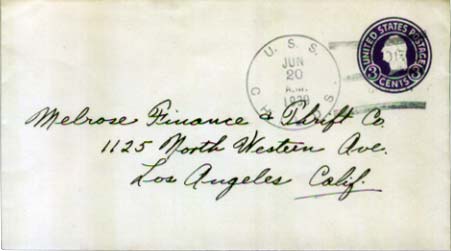 UNITED STATES POSTAGE
3 CENTS 3
U. S. S.
JUN
20
A.M.
Melrose Finance & Thrift Co.
1125 North Western Ave.
Los Angeles Calif.